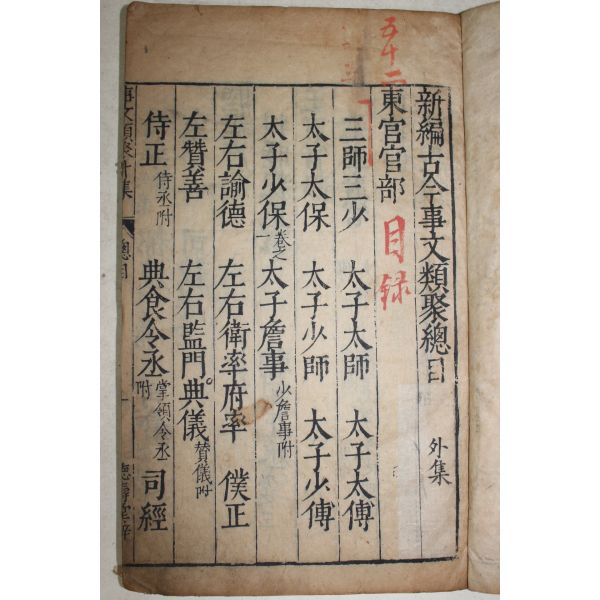 五十二
新編古今事文類聚總目 外集
東宮官部
目録
三師三少 太子太師 太子太傅
太子太保 太子少師 太子少傅
太子少保卷之一 太子詹事少詹事附
左右諭德 左右衛率府率 僕正
左贊善 左右監門典儀贊儀附
侍正侍丞附 典食令丞附掌領令丞 司經
事文類聚外集 總目 一